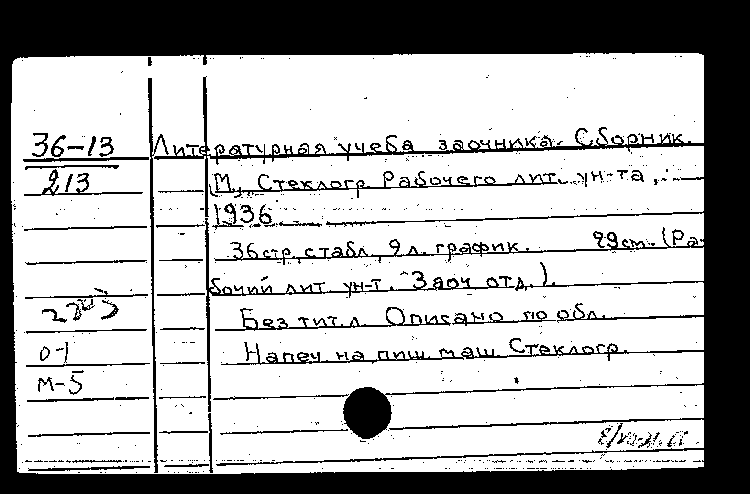 36-13 Литературная учеба заочника. Сборник.
213 М., Стеклогр. Рабочего лит. ун-та,
1936
36 стр. с табл., 9 л. график. 29 cm. (Ра-
бочий лит. ун-т. Заоч. отд.).
Без тит. л. Описано по обл.
0-1 Напеч. на пиш. маш. Стеклогр.
М-5